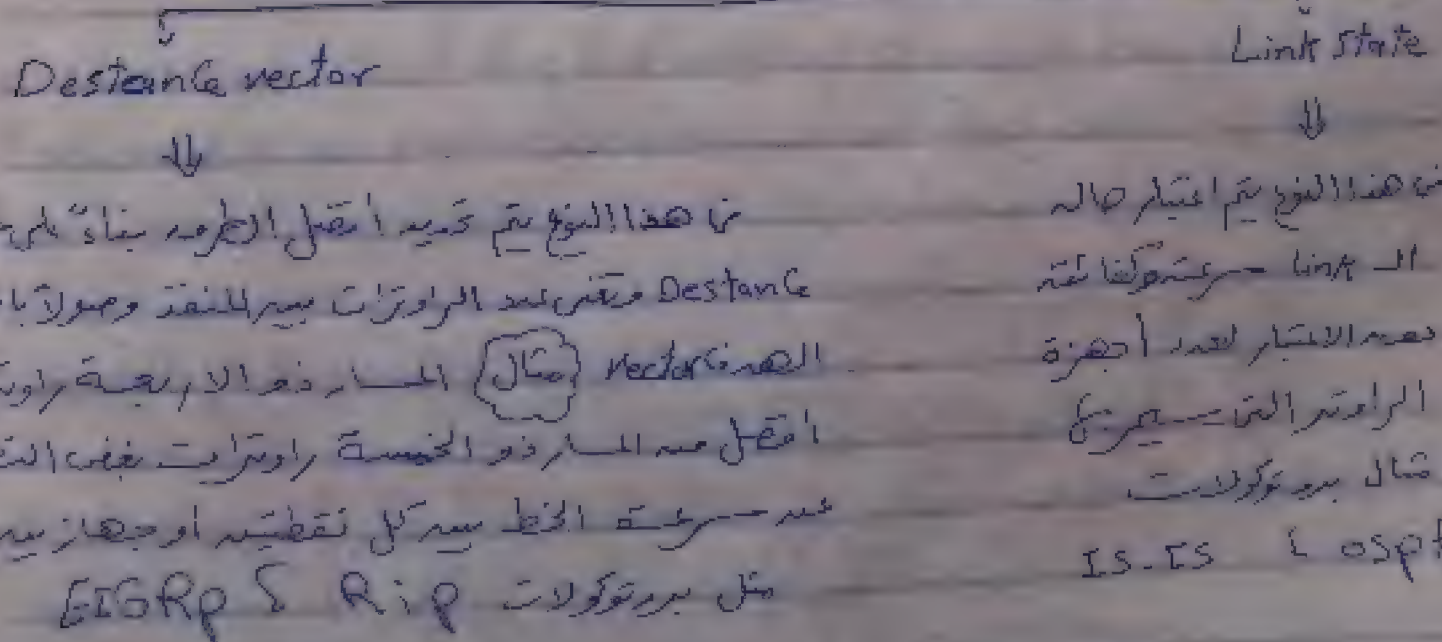 Destance vector
في هذا النوع يتم تحديد أفضل الطرق بناءً على
Destance ويعني عدد الراوترات بين المنفذ وصولاً
vector مثال المسار ذو الاربعة
افضل من المسار ذو الخمسة راوترات بغض
عن سرعة الخط بين كل نقطتين أو جهازين
مثل بروتوكولات Rip و EIGRp
Link State
في هذا النوع يتم اعتبار حاله
الـ Link سرعته وكفائته
الاعتبار لعدد أجهزة
الراوتر التي سيمر بها
مثال بروتوكولات
IS-IS و ospf